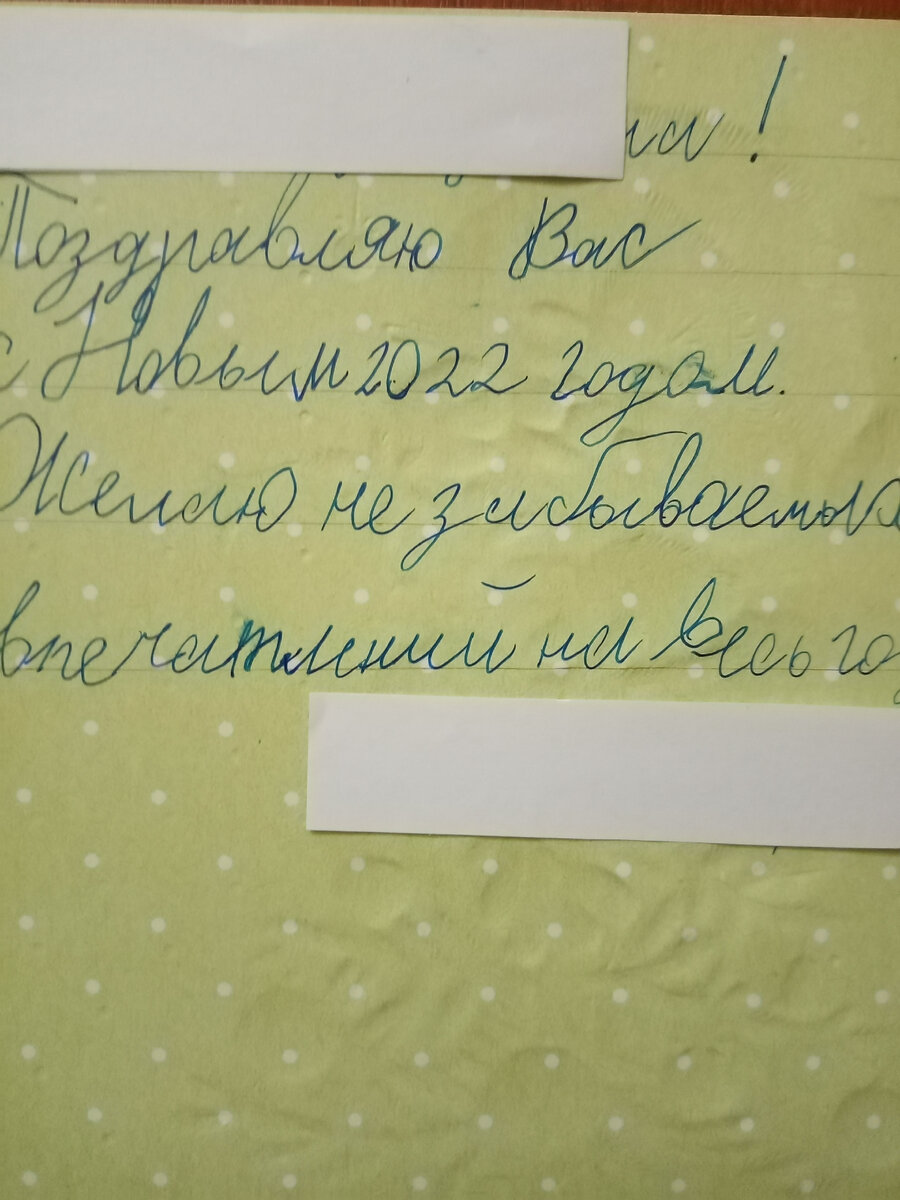 на!
Поздравляю Вас
с Новым 2022 годом.
Желаю не забываемых
впечатлений на весь го